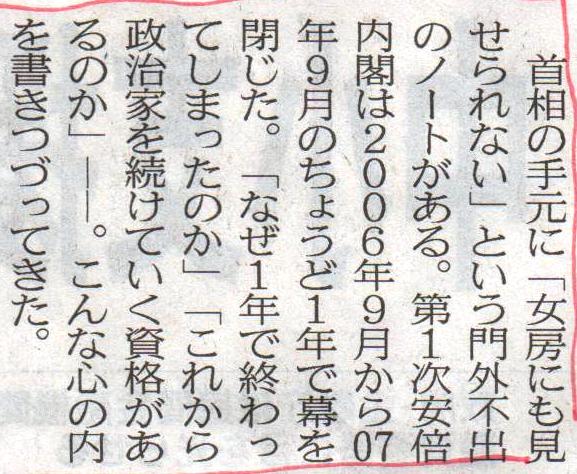 首相の手元に「女房にも見
せられない」という門外不出
のノートがある。第1次安倍
内閣は2006年9月から07
年9月のちょうど1年で幕を
閉じた。「なぜ1年で終わっ
てしまったのか」「これから
政治家を続けていく資格があ
るのか」――。こんな心の内
を書きつづってきた。